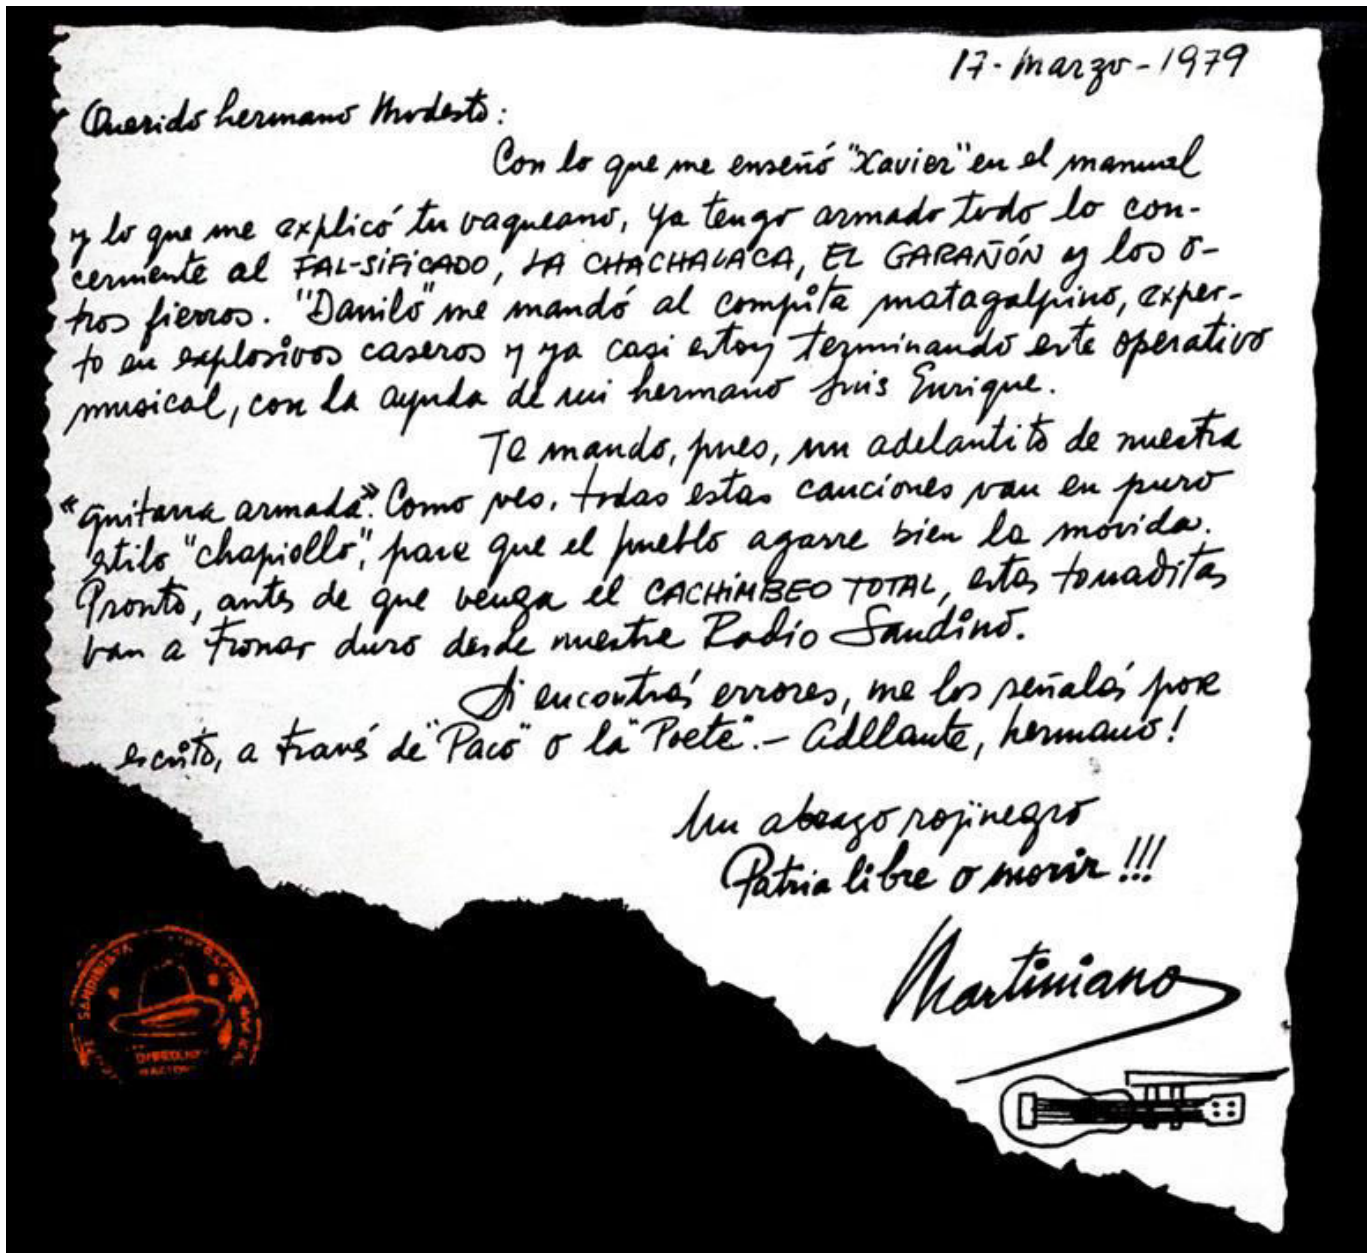 17-Marzo-1979
Querido hermano Modesto:
Con lo que me enseñó "Xavier" en el manual
y lo que me explicó tu vaqueano, ya tengo armado todo lo con-
cerniente al FAL-SIFICADO, LA CHACHALACA, EL GARAÑÓN y los o-
tros fierros. "Danilo" me mandó al compita matagalpino, exper-
to en explosivos caseros y ya casi estoy terminando este operativo
musical, con la ayuda de mi hermano Luis Enrique.
Te mando, pues, un adelantito de nuestra
"guitarra armada". Como ves, todas estas canciones van en puro
estilo "chapiollo", para que el pueblo agarre bien la movida.
Pronto, antes de que venga el CACHIMBEO TOTAL, estas tonaditas
van a tronar duro desde nuestra Radio Sandino.
Si encontrás errores, me los señalás por
escrito, a través de "Paco" o la "Poeta".- Adelante, hermano!
Un abrazo rojinegro
Patria libre o morir!!!
Martiniano
SANDINISTA